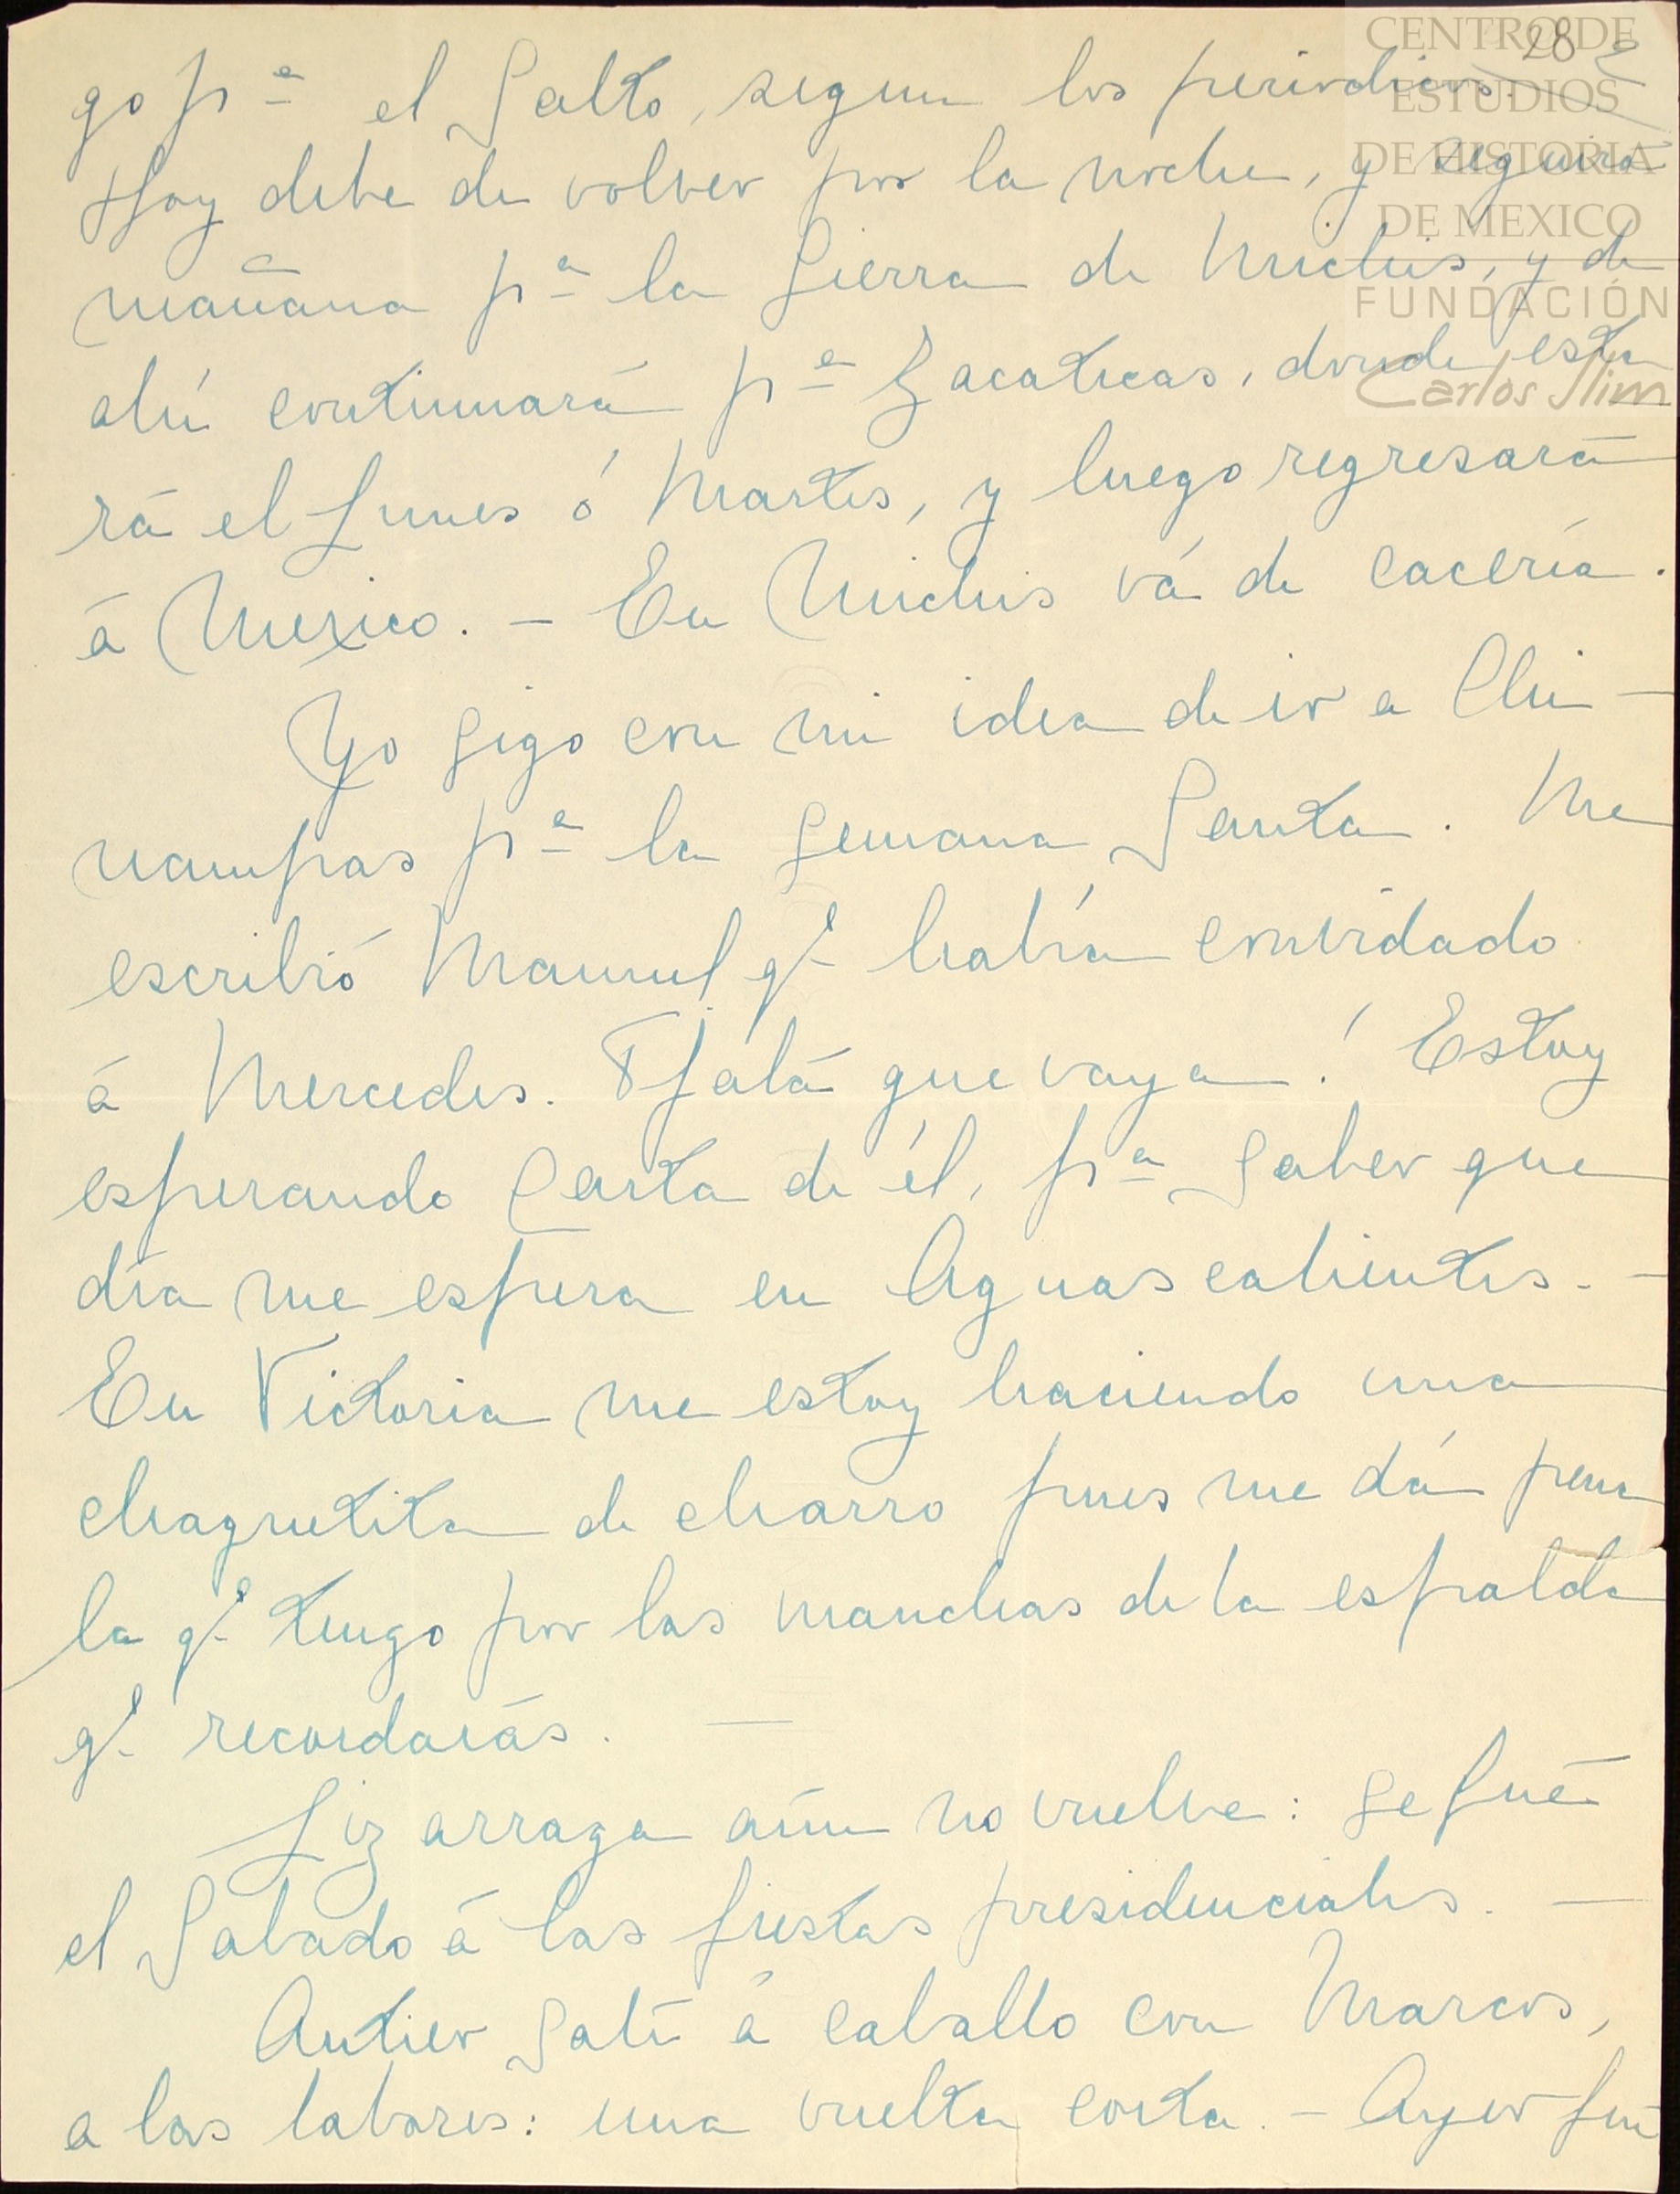 28
CENTRO DE
ESTUDIOS
DE HISTORIA
DE MEXICO
FUNDACIÓN
Carlos Slim
go pª el Salto, segun los periodicos.
Hoy debe de volver por la noche, y seguirá
mañana pª la Sierra de Michis, y de
ahí continuará pª Zacatecas, donde esta
rá el Lunes ó Martes, y luego regresará
á Mexico. - En Michis vá de cacería.
Yo sigo con mi idea de ir a Chi-
nampas pª la Semana Santa. Me
escribió Manuel qe había convidado
á Mercedes. Ojalá que vaya! Estoy
esperando Carta de él, pª saber que
día me espera en Aguascalientes. -
En Victoria me estoy haciendo una
chaquetita de charro pues me dá pena
la qe tengo por las manchas de la espalda
qe recordarás. —
Lizarraga aún no vuelve: se fué
el Sabado á las fiestas presidenciales. —
Antier salí á caballo con Marcos,
a las labores: una vuelta corta. - Ayer fuí